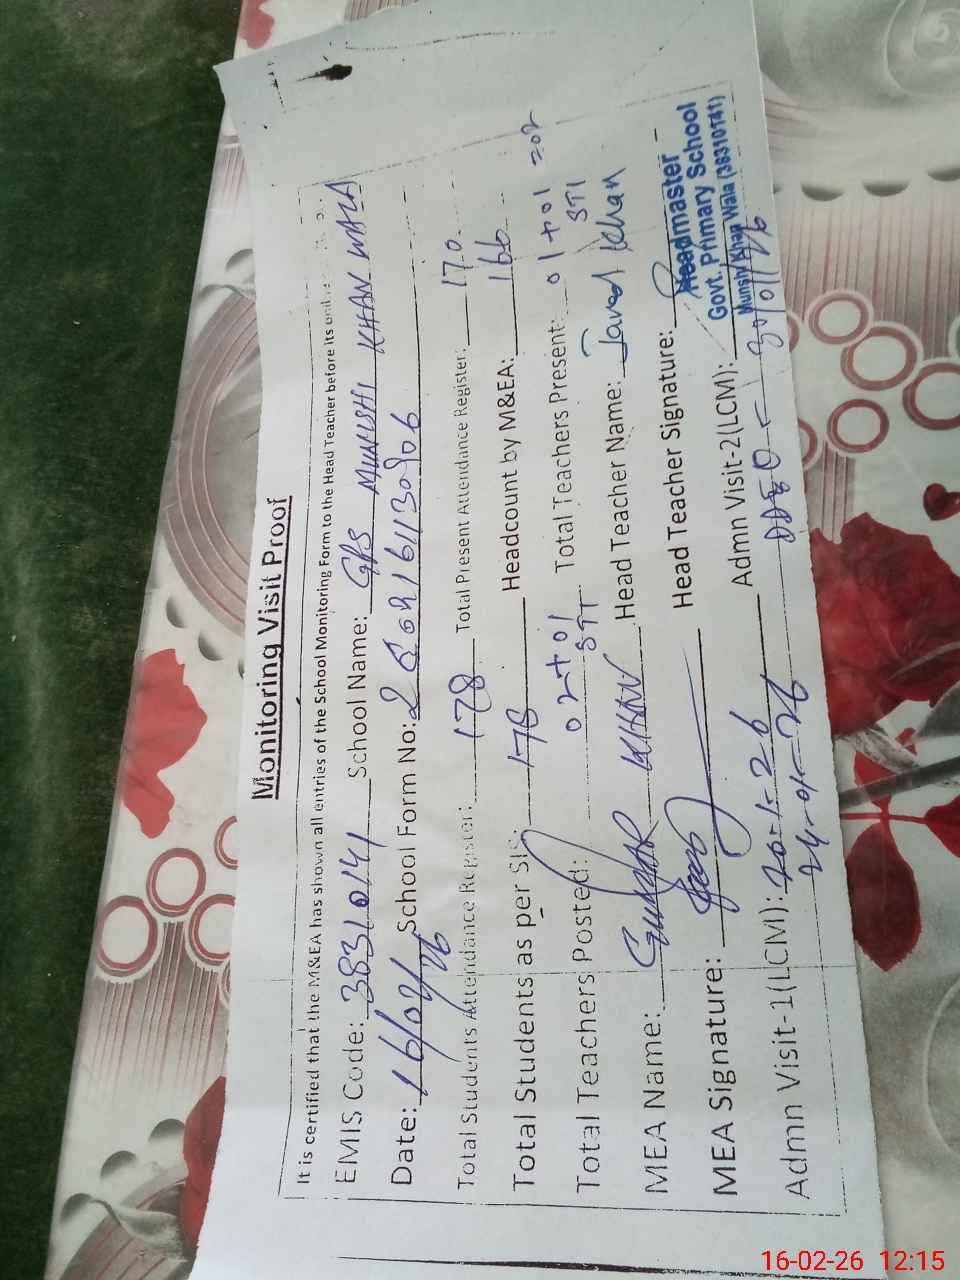 Monitoring Visit Proof
It is certified that the M&EA has shown all entries of the School Monitoring Form to the Head Teacher before its
EMIS Code: 38310141 School Name: GPS MUNSHI KHAN WALA
Date: 16/02/26 School Form No:
Total Students Attendance Register: 178 Total Present Attendance Register: 170
Total Students as per SIS: 178 Headcount by M&EA: 166
Total Teachers Posted: 02+01 STI Total Teachers Present: 01+01 STI =02
MEA Name: KHAN Head Teacher Name: Javed Khan
MEA Signature: Head Teacher Signature:
Headmaster
Govt. Primary School
Munshi Khan Wala (38310141)
Admn Visit-1(LCM): 24-01-26 Admn Visit-2(LCM): 30/01/26
16-02-26 12:15